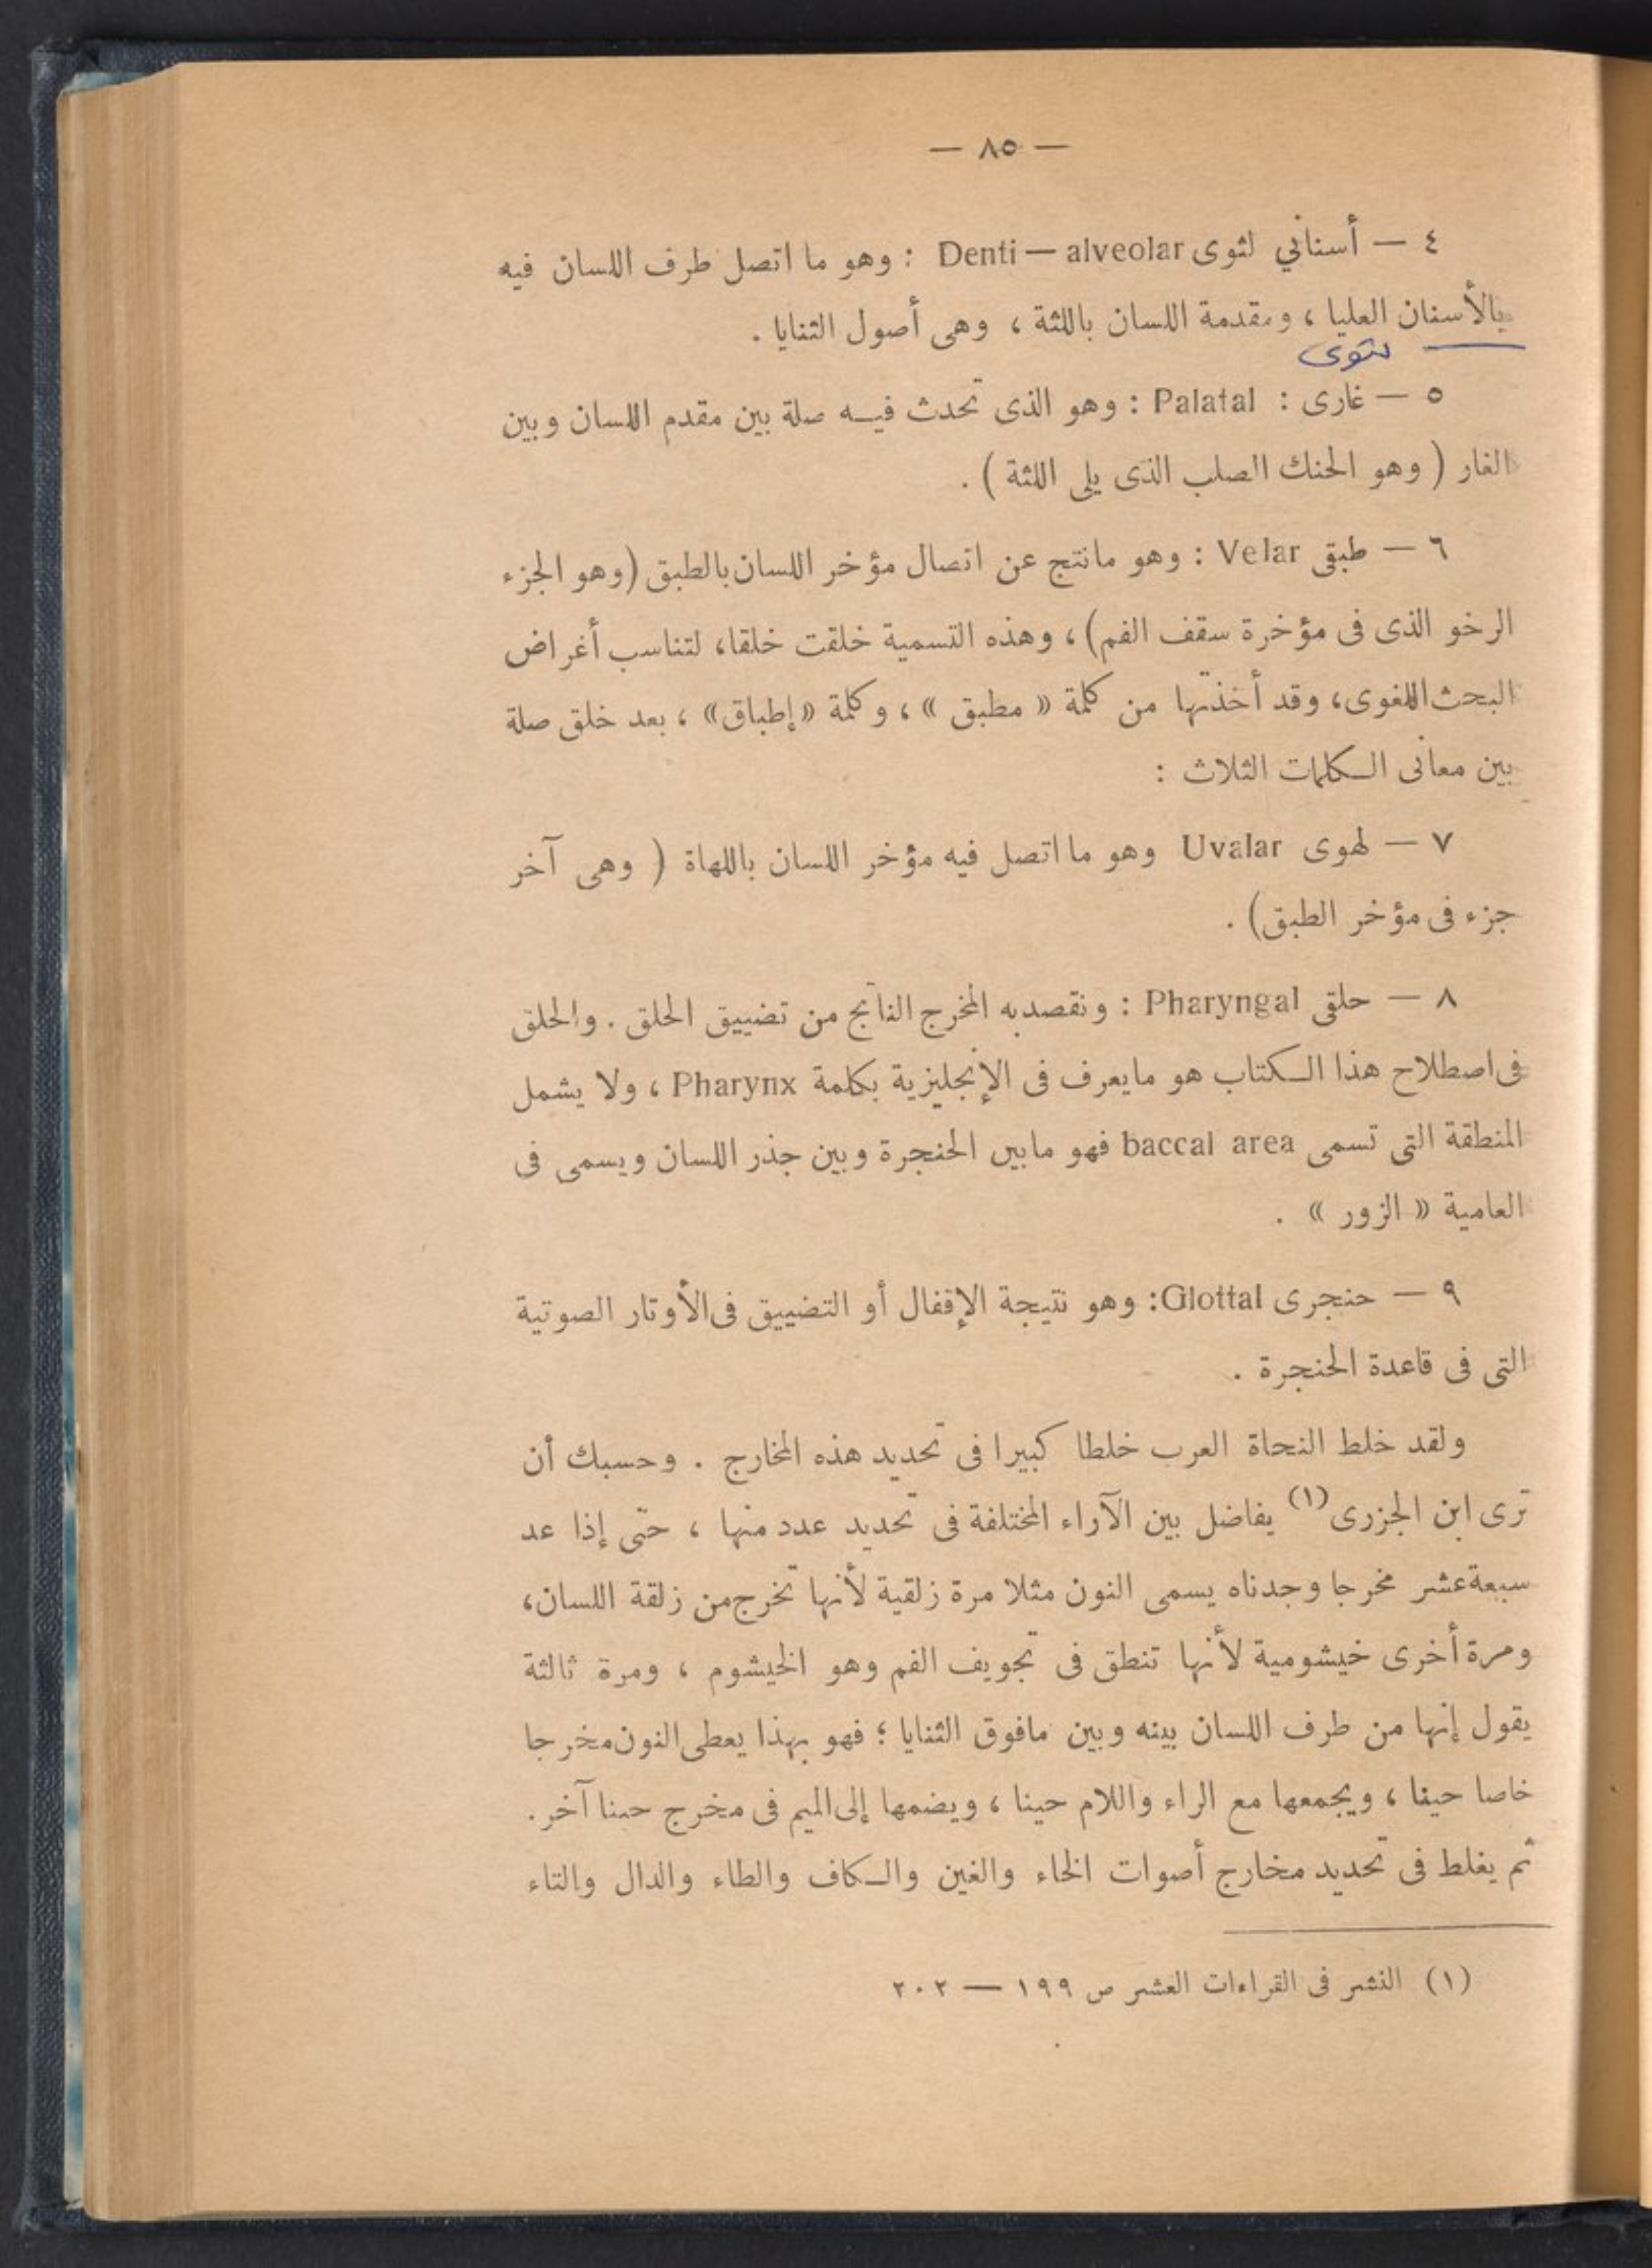 — ٨٥ —
٤ — أسناني لثوى Denti — alveolar : وهو ما اتصل طرف اللسان فيه
بالأسنان العليا ، ومقدمة اللسان باللثة ، وهى أصول الثنايا .
لثوى
٥ — غارى : Palatal : وهو الذى تحدث فيه صلة بين مقدم اللسان وبين
الغار ( وهو الحنك الصلب الذى يلى اللثة ) .
٦ — طبقى Velar : وهو مانتج عن اتصال مؤخر اللسان بالطبق (وهو الجزء
الرخو الذى فى مؤخرة سقف الفم) ، وهذه التسمية خلقت خلقا، لتناسب أغراض
البحث اللغوى، وقد أخذتها من كلمة « مطبق » ، وكلمة « إطباق» ، بعد خلق صلة
بين معانى الكلمات الثلاث :
٧ — لهوى Uvalar وهو ما اتصل فيه مؤخر اللسان باللهاة ( وهى آخر
جزء فى مؤخر الطبق) .
٨ — حلقى Pharyngal : ونقصد به المخرج الناتج من تضييق الحلق . والحلق
فى اصطلاح هذا الكتاب هو مايعرف فى الإنجليزية بكلمة Pharynx ، ولا يشمل
المنطقة التى تسمى baccal area فهو مابين الحنجرة وبين جذر اللسان ويسمى فى
العامية « الزور » .
٩ — حنجرى Glottal: وهو نتيجة الإقفال أو التضييق فى الأوتار الصوتية
التى فى قاعدة الحنجرة .
ولقد خلط النحاة العرب خلطا كبيرا فى تحديد هذه المخارج . وحسبك أن
ترى ابن الجزرى (١) يفاضل بين الآراء المختلفة فى تحديد عدد منها ، حتى إذا عد
سبعة عشر مخرجا وجدناه يسمى النون مثلا مرة زلقية لأنها تخرج من زلقة اللسان،
ومرة أخرى خيشومية لأنها تنطق فى تجويف الفم وهو الخيشوم ، ومرة ثالثة
يقول إنها من طرف اللسان بينه وبين مافوق الثنايا ؛ فهو بهذا يعطى النون مخرجا
خاصا حينا ، ويجمعها مع الراء واللام حينا ، ويضمها إلى الميم فى مخرج حينا آخر .
ثم يغلط فى تحديد مخارج أصوات الخاء والغين والكاف والطاء والدال والتاء
(١) النشر فى القراءات العشر ص ١٩٩ — ٢٠٢